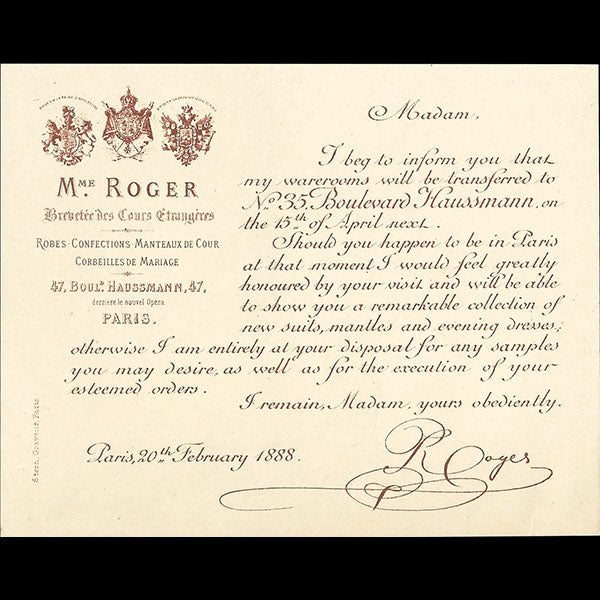 Mᴹᴱ ROGER
Brevetée des Cours Etrangères
ROBES-CONFECTIONS-MANTEAUX DE COUR
CORBEILLES DE MARIAGE
47, BOULᴰ. HAUSSMANN, 47,
derrière le nouvel Opéra
PARIS.
Madam,
I beg to inform you that
my warerooms will be transferred to
Nº 35, Boulevard Haussmann, on
the 15th of April next.
Should you happen to be in Paris
at that moment I would feel greatly
honoured by your visit and will be able
to show you a remarkable collection of
new suits, mantles and evening dresses;
otherwise I am entirely at your disposal for any samples
you may desire, as well as for the execution of your
esteemed orders.
I remain, Madam, yours obediently.
Paris, 20th February 1888.
R Roger